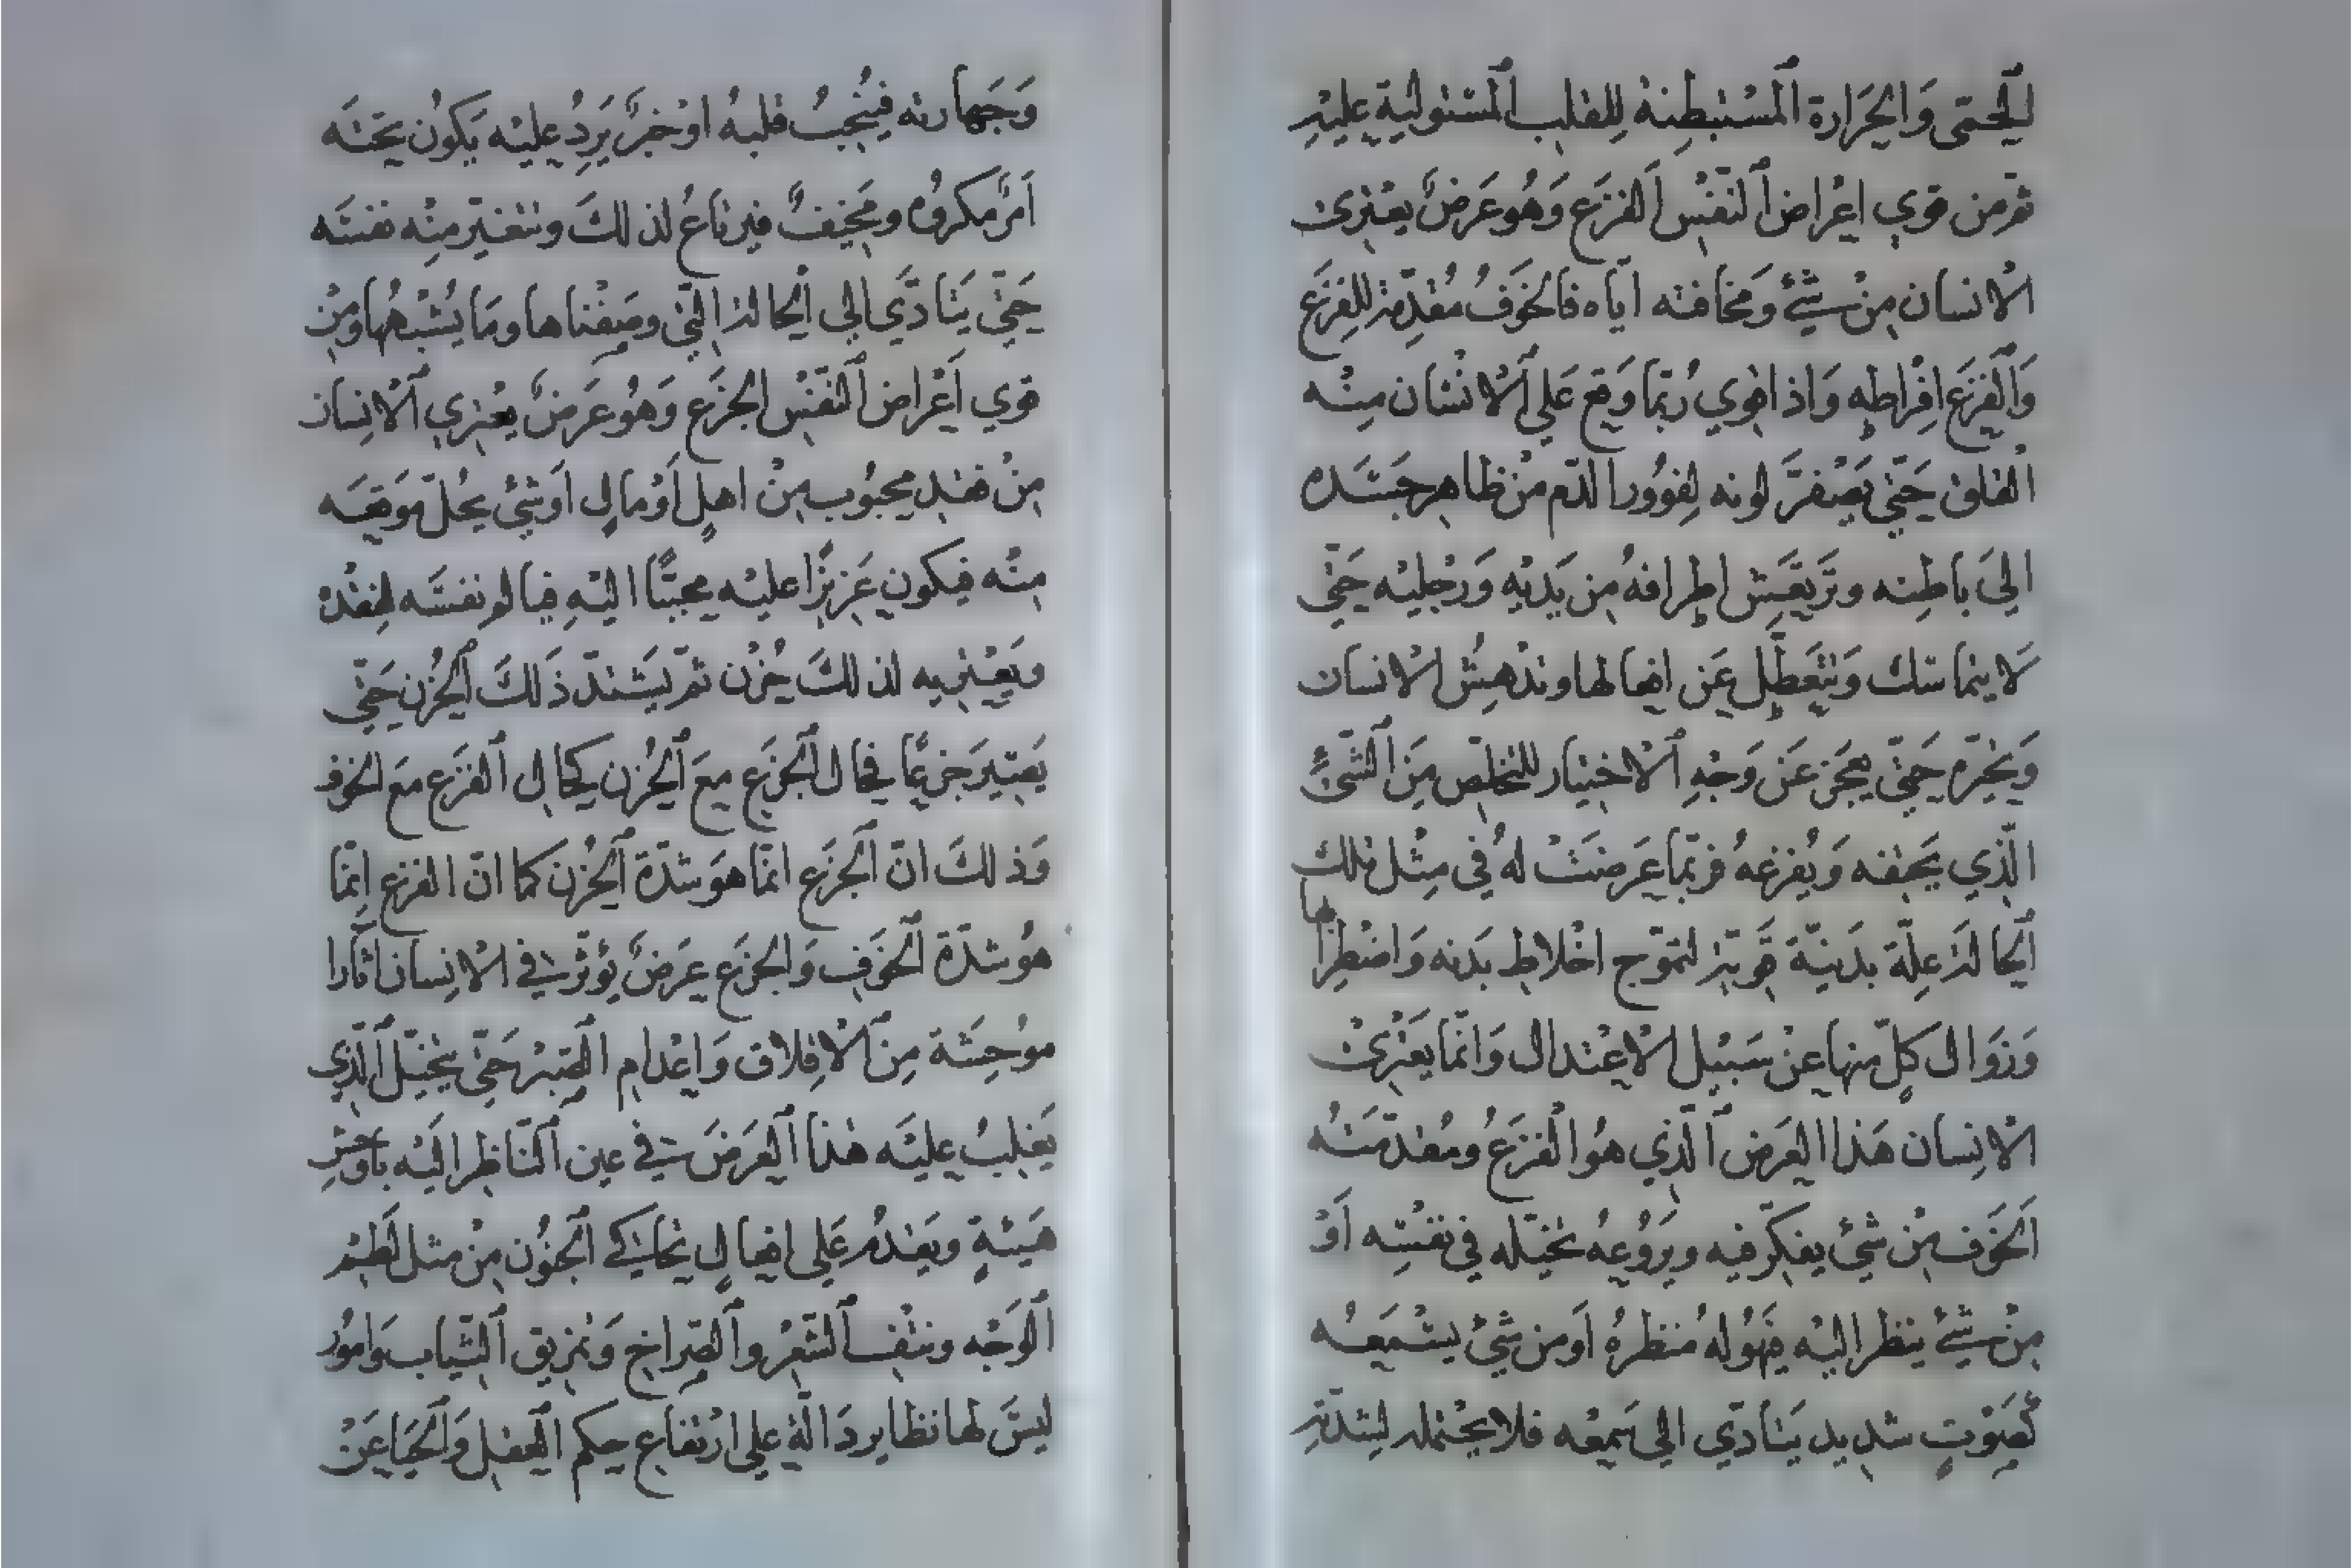 الحمّى وَالحَرَارة المسْتبطِنة لِلقلب المسْتولية عليْهِ
ثمّ من قوي اعْراض النّفْس الفزَع وَهُو عَرَضٌ يعْترى
الانسان مِنْ شيْئٍ وَمخافته اياه فالخَوَفُ مُقدّمة للفزَع
وَالفزَع افْراطه وَاذا قوي رُبّما وَقع عَلي الانْسَان مِنْه
القلق حَتّي يَصْفرَّ لونه لِغوُور الدّم منْ ظاهِر جَسَده
الىَ باطِنه وتَرْتعَش اطرافهُ مِن يَديْهِ وَرجْليْه حَتّي
لَا يتماسَك وَيتعَطّل عَن افعالها وتدْهِشُ الانسان
وَيحيّره حَتّي يعجَز عَن وَجْهِ الاخْتيار للتخلّص مِنَ الشّيئ
الّذي يخيفه وَيُفزعهُ فربّما عَرضَتْ لهُ في مِثْل تلك
الحالة علّة بدَنيّة قَويّة لتموّج اخْلاط بَدنه وَاضْطرابها
وَزوَال كلّ منها عنْ سَبيْل الاعْتدال وَانّما يَعْتريْ
الانسان هَذا العَرَض الّذي هُوا لْفزعُ ومُقدّمتَهُ
الخَوَف مِنْ شيْئ يفكّر فيه ويرَوُعهُ تخيّله في نفْسِه أوْ
مِنْ شيْئٍ ينظر اليْه فيهُولهُ مَنظرهُ أوَ من شيْئ يسْمَعُه
كصَوْتٍ شديد يتأدّي الي سَمعْه فلا يحْتمله لشدّته
وَجَهارته فينْخبُ قلبهُ اوْ خبرٌ يَرِدُ عليْه يَكونُ تحْتَه
امْرٌ مكروُه ومخيفٌ فيرتاعُ لذلكَ وتتغيّر مِنْه نفسَه
حَتّي يَتأدَّي الي الحالة الّتي وصَفْناها ومَا يُشْبهُها ومِنْ
قوي أَعْراض النّفْس الجزَع وَهُو عَرَضٌ يعْتري الانِسان
مِنْ فقد محبُوب مِنْ اهلٍ أوْ مالٍ أو شيْئ يحُلّ مَوقِعَه
مِنْه فيكون عَزيزًا عليْه محببًّا اليْهِ فيألم نفسَه لفقْده
ويَعْتريه لذلكَ حُزْن ثمّ يَشتدّ ذَلكَ الحُزْن حَتّي
يَصير جَزعًا فحال الجزَع معَ الحُزن كحَال الفزَع مَع الخوف
وَذلكَ انّ الجزَع انّما هَو شدّة الحُزنَ كما انّ الفزع انّما
هُو شدّة الخَوَف وَالجزَع عرَضٌ يؤثّر في الانِسان اثارا
موُحِشَة مِنَ الاقلاق وَاعْدام الصّبْر حَتّي يخيّل الّذي
يَغلبُ عليْه هَذا العَرَض في عين النّاظر اليْه باوحشِ
هَيْئةٍ ويَقدمُ عَلي افعالٍ يحاكي الجنُون مِنْ مثل لَطْم
الوَجْه ونتف الشّعْر والصّراخ وَتمزيق الثّياب وَامُور
ليْسَ لها نظاير دَالّة علي ارْتفاع حكم العقل وَالحيَا عَنْ